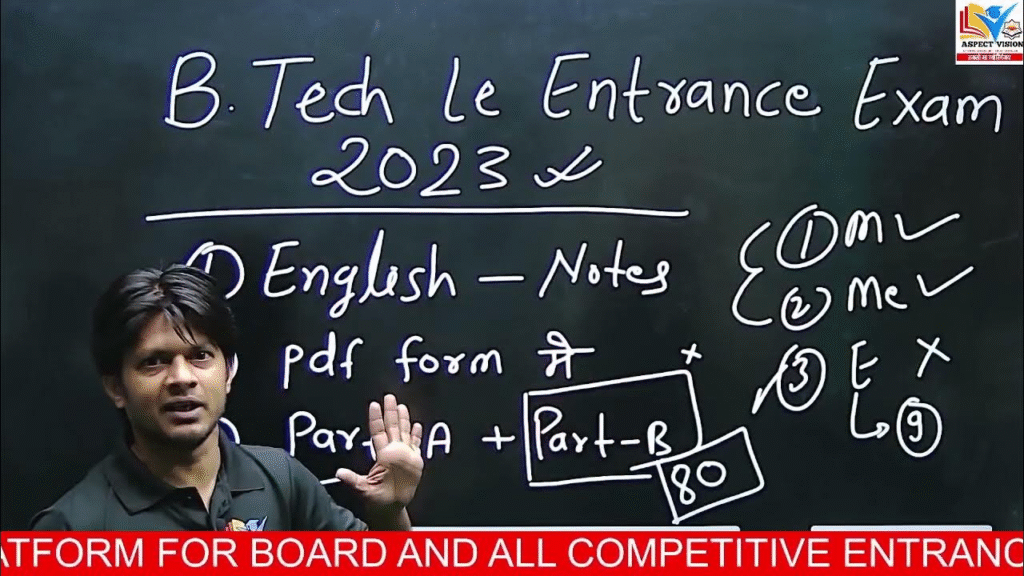 ASPECT VISION
B.Tech le Entrance Exam
2023
1 English – Notes
pdf form में
Part A + Part-B
80
1 M
2 Me
3 E X
9
ATFORM FOR BOARD AND ALL COMPETITIVE ENTRANC